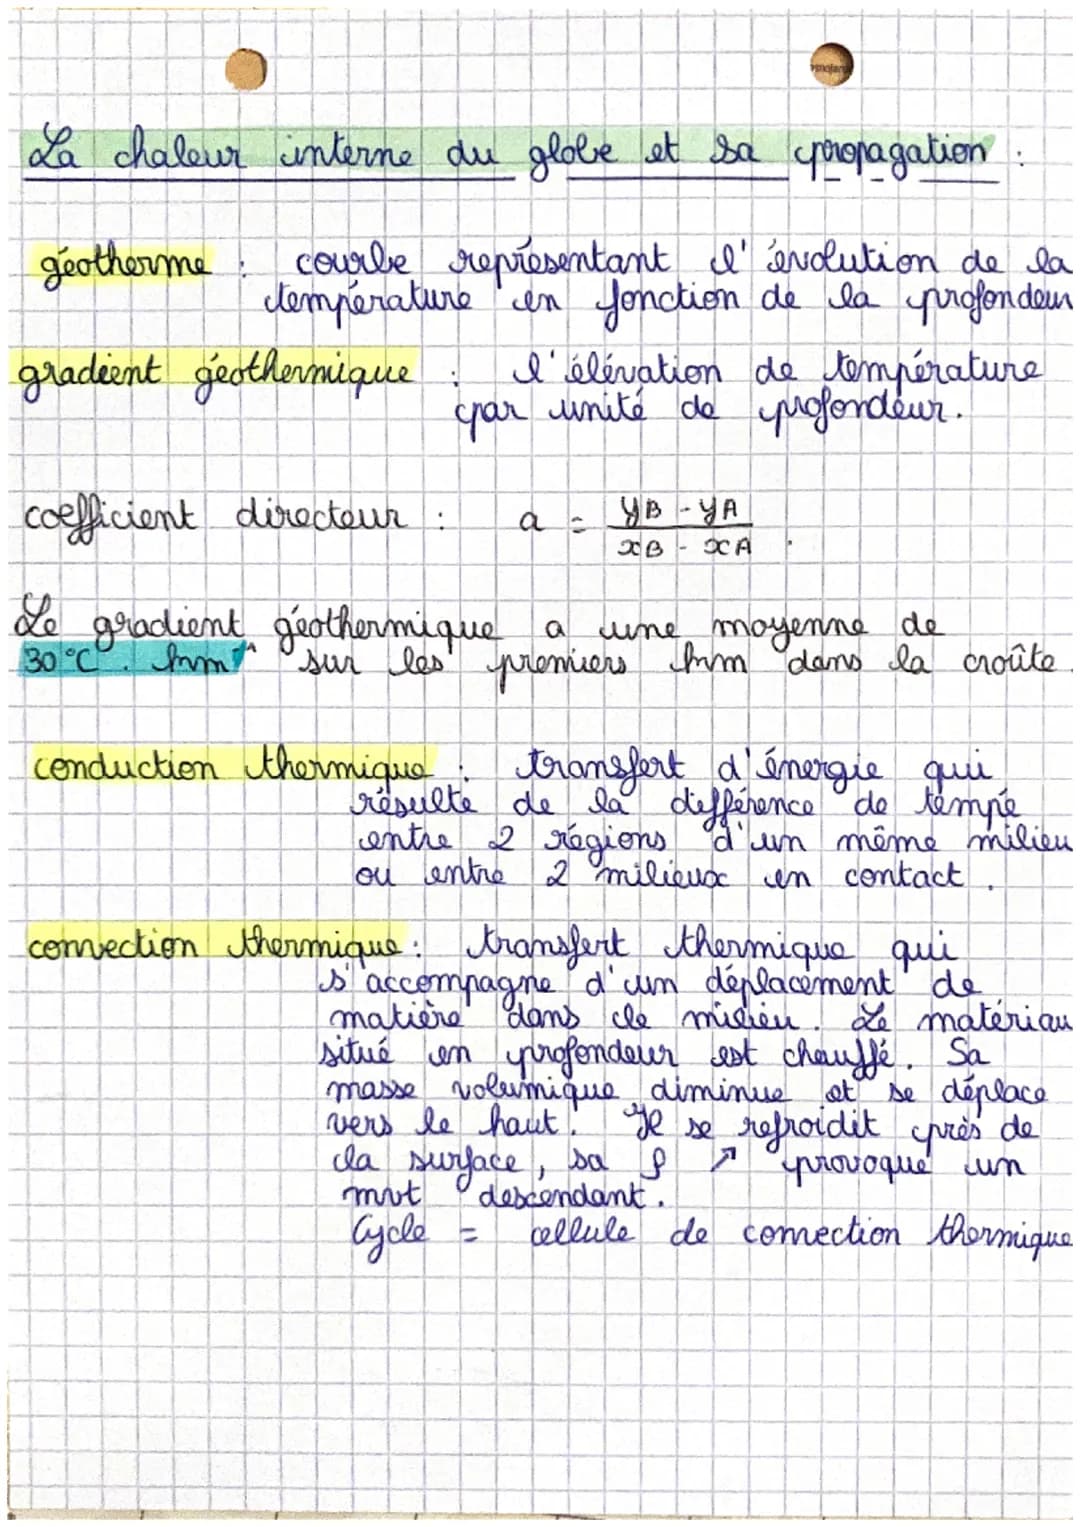 La chaleur interne du globe et sa propagation :
géotherme : courbe représentant l'évolution de la
température en fonction de la profondeur
gradient géothermique : l'élévation de température
par unité de profondeur.
coefficient directeur : a = yB - yA / xB - xA .
Le gradient géothermique a une moyenne de
30°C . km⁻¹ sur les premiers km dans la croûte.
conduction thermique : transfert d'énergie qui
résulte de la différence de tempe
entre 2 régions d'un même milieu
ou entre 2 milieux en contact .
convection thermique : transfert thermique qui
s'accompagne d'un déplacement de
matière dans le milieu. Le matériau
situé en profondeur est chauffé. Sa
masse volumique diminue et se déplace
vers le haut. Il se refroidit près de
la surface, sa ρ ↗ provoque un
mvt descendant.
Cycle = cellule de convection thermique